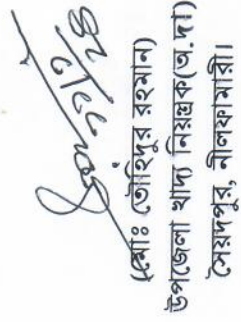 (মোঃ তৌহিদুর রহমান)
উপজেলা খাদ্য নিয়ন্ত্রক(অ.দা)
সৈয়দপুর, নীলফামারী।